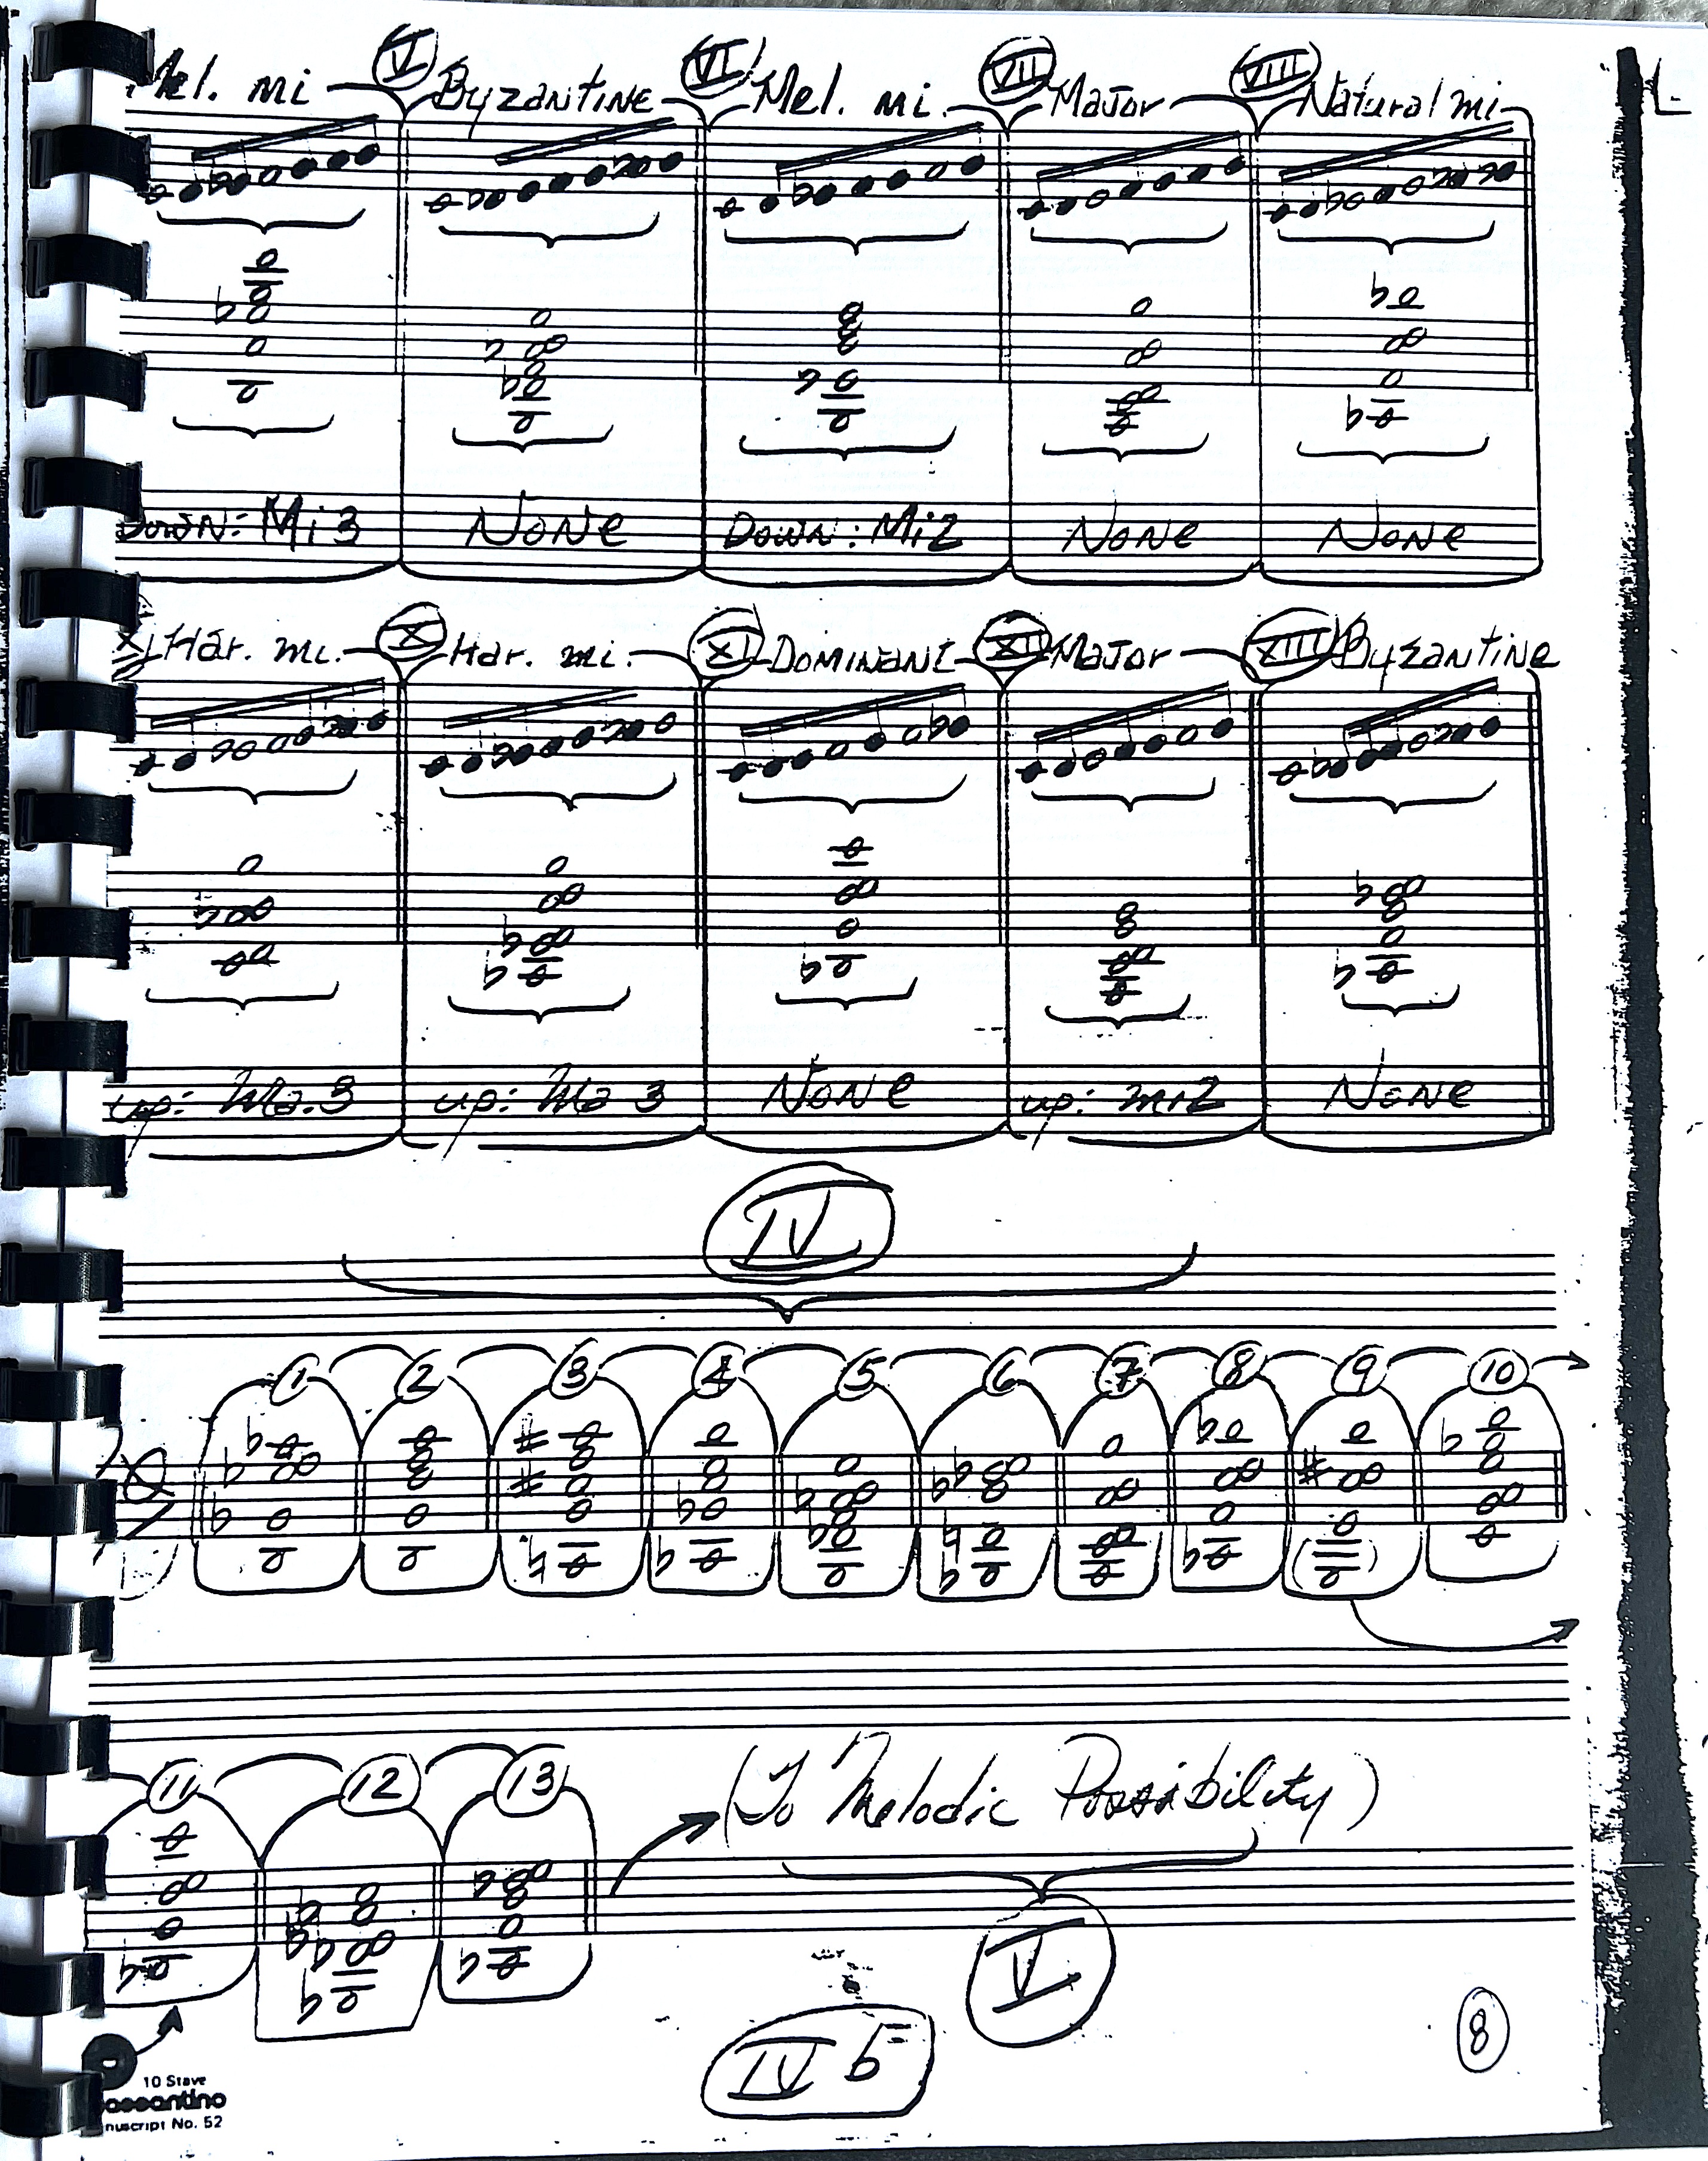 Mel. mi V Byzantine VI Mel. mi. VII Major VIII Natural mi
Down: Mi3 None Down: Mi2 None None
Har. mi. X Har. mi. XI Dominant XII Major XIII Byzantine
up: Ma.3 up: Ma 3 None up: mi2 None
IV
1 2 3 4 5 6 7 8 9 10
11 12 13 (To Melodic Possibility)
V
IV b
8
10 Stave
Passantino
nuscript No. 52